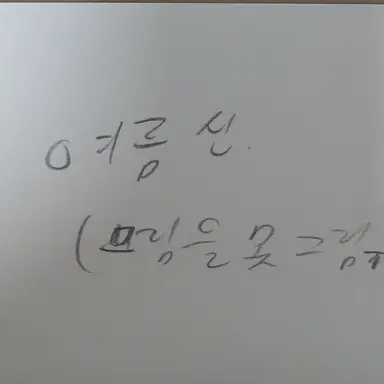 여름 신.
(그림을 못 그림ㅠ